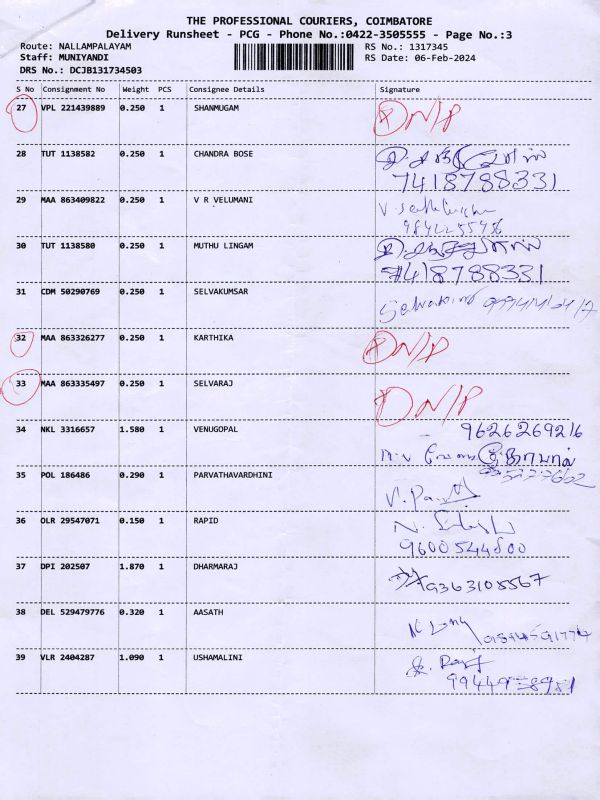 THE PROFESSIONAL COURIERS, COIMBATORE
Delivery Runsheet - PCG - Phone No.:0422-3505555 - Page No.:3
Route: NALLAMPALAYAM RS No.: 1317345
Staff: MUNIYANDI RS Date: 06-Feb-2024
DRS No.: DCJB131734503
S No Consignment No Weight PCS Consignee Details Signature
27 VPL 221439889 0.250 1 SHANMUGAM D N/P
28 TUT 1138582 0.250 1 CHANDRA BOSE
7418788331
29 MAA 863409822 0.250 1 V R VELUMANI
30 TUT 1138580 0.250 1 MUTHU LINGAM
7418788331
31 CDM 50290769 0.250 1 SELVAKUMSAR
32 MAA 863326277 0.250 1 KARTHIKA D N/P
33 MAA 863335497 0.250 1 SELVARAJ D N/P
34 NKL 3316657 1.580 1 VENUGOPAL 9626269216
35 POL 186486 0.290 1 PARVATHAVARDHINI
36 OLR 29547071 0.150 1 RAPID
9600544800
37 DPI 202507 1.870 1 DHARMARAJ 9363105567
38 DEL 529479776 0.320 1 AASATH
39 VLR 2404287 1.090 1 USHAMALINI